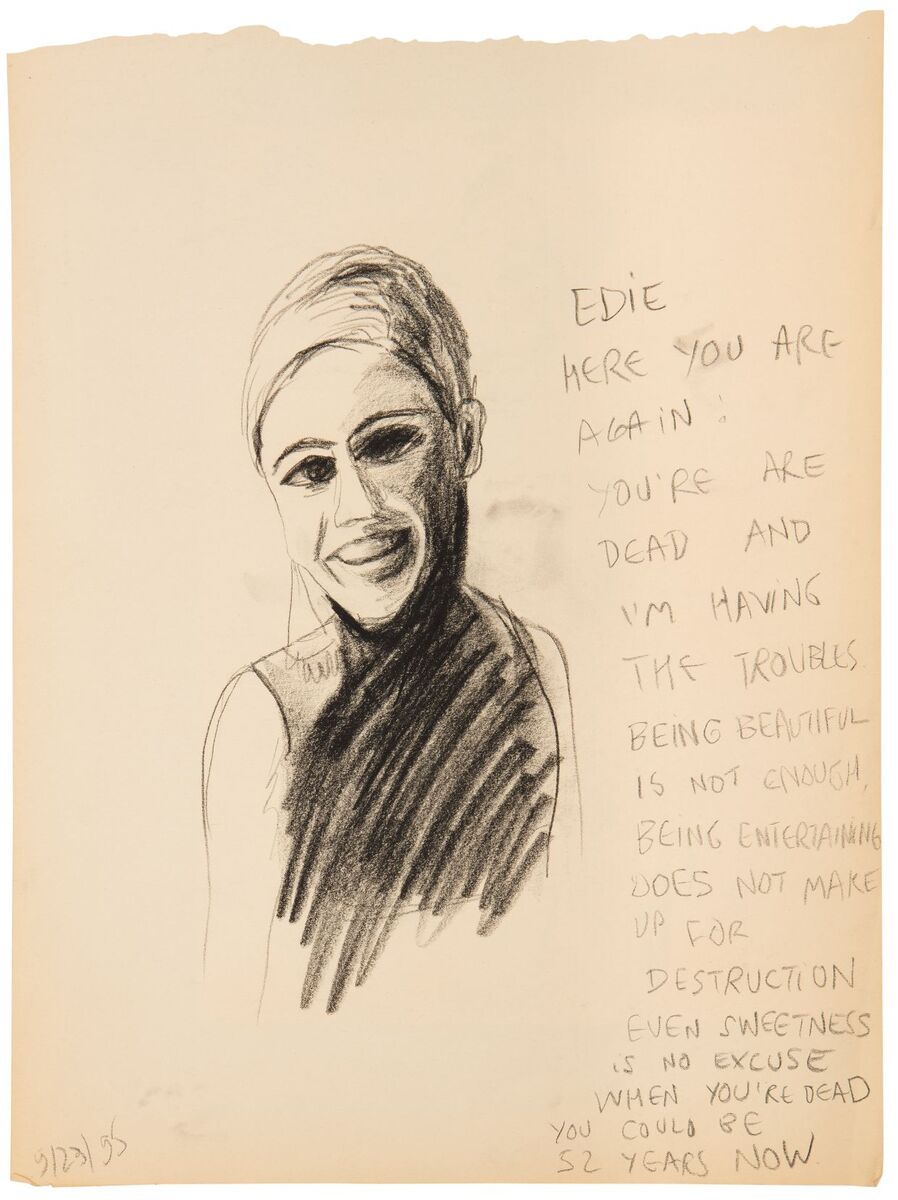 EDIE
HERE YOU ARE
AGAIN!
YOU'RE ARE
DEAD AND
I'M HAVING
THE TROUBLES.
BEING BEAUTIFUL
IS NOT ENOUGH,
BEING ENTERTAINING
DOES NOT MAKE
UP FOR
DESTRUCTION
EVEN SWEETNESS
IS NO EXCUSE
WHEN YOU'RE DEAD
YOU COULD BE
52 YEARS NOW.
9/23/95